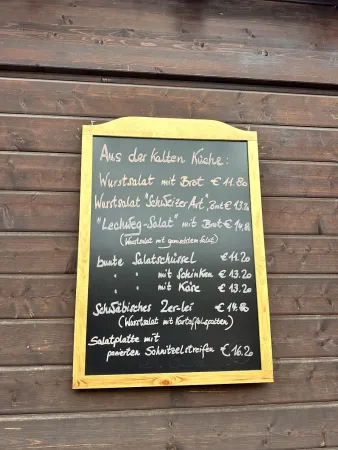 Aus der kalten Küche:
Wurstsalat mit Brot € 11.80
Wurstsalat "Schweizer Art", Brot € 13.20
"Lechweg-Salat" mit Brot € 14.80
(Wurstsalat mit gemischtem Salat)
bunte Salatschüssel € 11.20
" " mit Schinken € 13.20
" " mit Käse € 13.20
Schwäbisches 2er-lei € 14.80
(Wurstsalat mit Kartoffelspatzen)
Salatplatte mit
panierten Schnitzelstreifen € 16.20